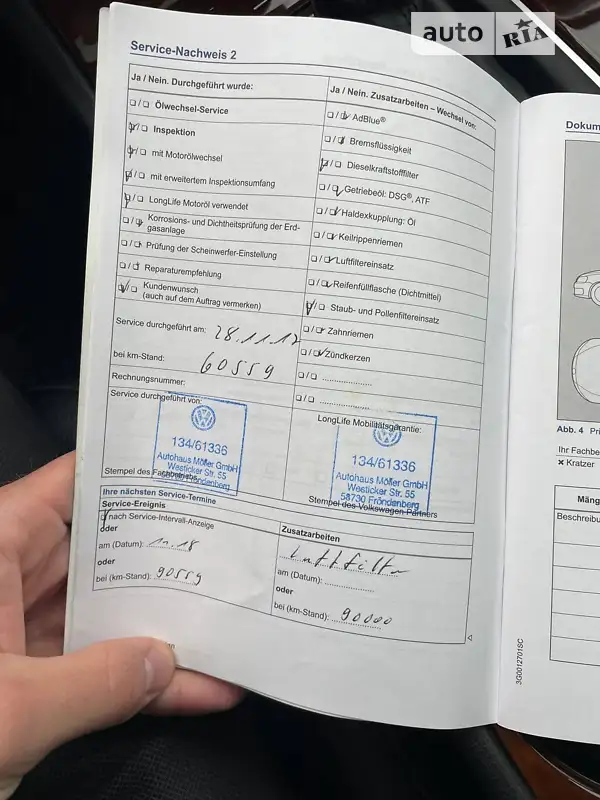 auto RIA
Service-Nachweis 2
Ja / Nein. Durchgeführt wurde:
Ölwechsel-Service
Inspektion
mit Motorölwechsel
mit erweitertem Inspektionsumfang
LongLife Motoröl verwendet
Korrosions- und Dichtheitsprüfung der Erd-
gasanlage
Prüfung der Scheinwerfer-Einstellung
Reparaturempfehlung
Kundenwunsch
(auch auf dem Auftrag vermerken)
Service durchgeführt am: 28.11.17
bei km-Stand: 60559
Rechnungsnummer:
Service durchgeführt von:
134/61336
Autohaus Möller GmbH
Westicker Str. 55
58730 Fröndenberg
Stempel des Fachbetriebs
Ja / Nein. Zusatzarbeiten – Wechsel von:
AdBlue®
Bremsflüssigkeit
Dieselkraftstofffilter
Getriebeöl: DSG®, ATF
Haldexkupplung: Öl
Keilrippenriemen
Luftfiltereinsatz
Reifenfüllflasche (Dichtmittel)
Staub- und Pollenfiltereinsatz
Zahnriemen
Zündkerzen
LongLife Mobilitätsgarantie:
134/61336
Autohaus Möller GmbH
Westicker Str. 55
58730 Fröndenberg
Stempel des Volkswagen Partners
Ihre nächsten Service-Termine
Service-Ereignis
nach Service-Intervall-Anzeige
oder
am (Datum): 11.18
oder
bei (km-Stand): 90559
Zusatzarbeiten
Luftfilter
am (Datum):
oder
bei (km-Stand): 90000
3G0012701SC
Dokum
Abb. 4 Pri
Ihr Fachbe
× Kratzer
Mäng
Beschreibu